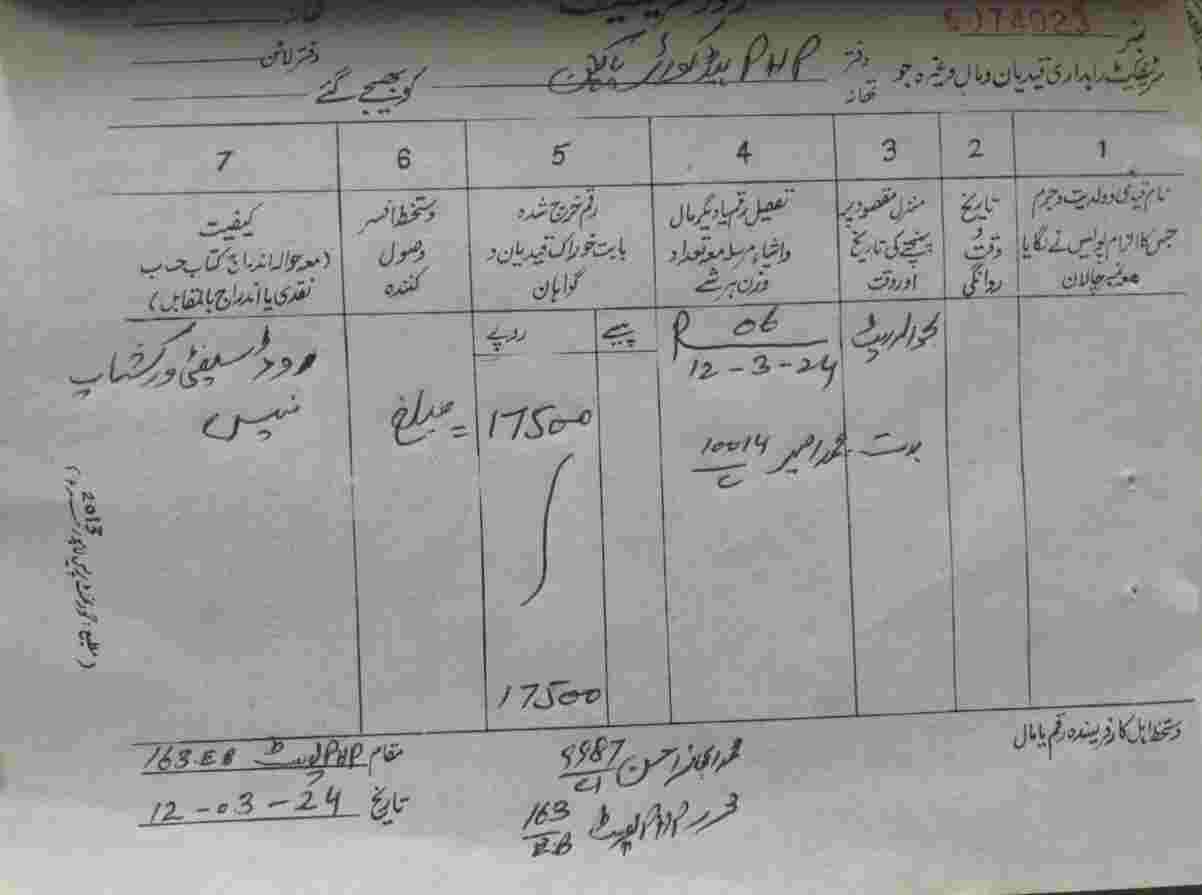 نمبر 6J74023
تھانہ
سرٹیفکیٹ راہداری قیدیان ومال وغیرہ جو دفتر تھانہ PHP ہیڈ کوارٹر پاکپتن کو بھیجے گئے
دفتر لائن
1 2 3 4 5 6 7
نام قیدی وولدیت وجرم
جس کا الزام پولیس نے لگایا
معہ نمبر چالان
تاریخ
و
وقت
روانگی
منزل مقصود پر
پہنچنے کی تاریخ
اور وقت
تفصیل رقم یا دیگر مال
واشیاء مرسلہ معہ تعداد
وزن ہر شے
رقم خرچ شدہ
بابت خوراک قیدیان و
گواہان
دستخط افسر
وصول
کنندہ
کیفیت
(معہ حوالہ اندراج کتاب حساب
نقدی یا اندراج بالمقابل)
پیسے روپے
بحوالہ رپٹ R 06
12-3-24
بدست محمد 10014
C
17500
مبلغ
روڈ سیفٹی ورکشاپ
فیس
17500
2013
دستخط اہل کار فریسندہ رقم یا مال
محمد اعجاز احسن 9987
محرر PHP پوسٹ 163
EB
مقام PHP پوسٹ 163.EB
تاریخ 12-03-24